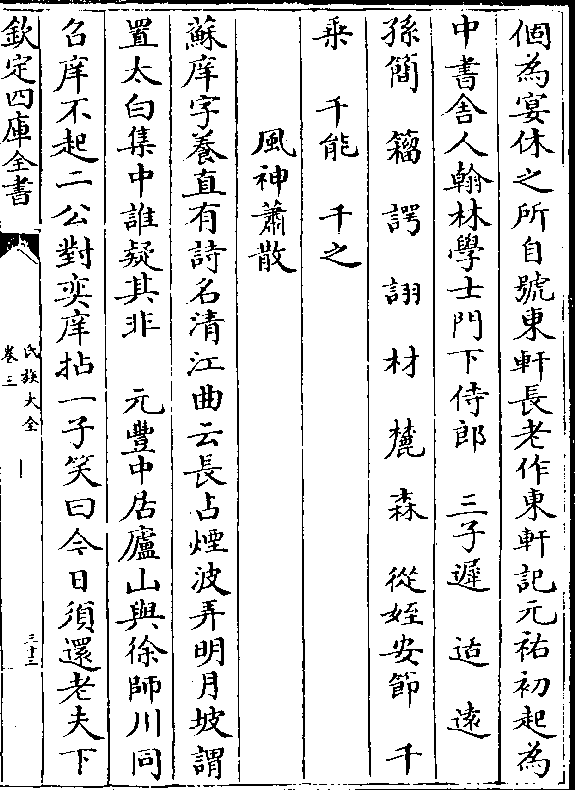 個為宴休之所自號東軒長老作東軒記元祐初起為
中書舍人翰林學士門下侍郎　三子遲　适　遠
孫簡　籀　諤　詡　材　𥴊　森　從姪安節　千
乗　千能　千之
風神蕭散
蘇庠字養直有詩名清江曲云長占煙波弄明月坡謂
置太白集中誰疑其非　元豐中居廬山與徐師川同
召庠不起二公對奕庠拈一子笑曰今日須還老夫下
欽定四庫全書
氏族大全
卷三
三十三